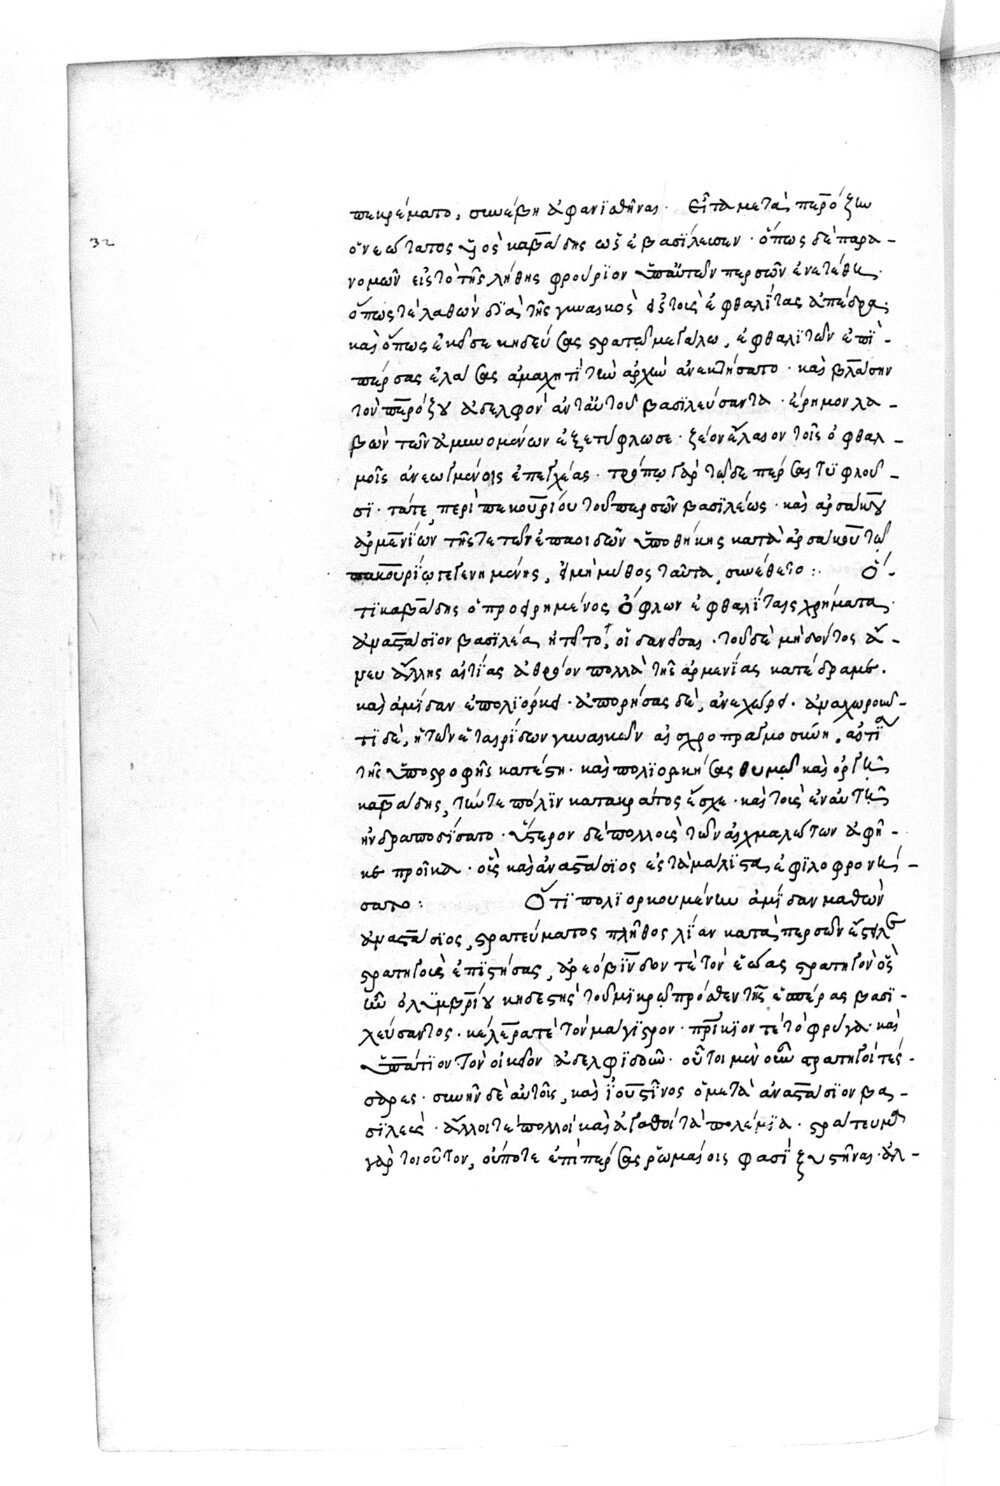 πεκρέματο, συνέβη ἀφανισθῆναι. Εἶτα μετὰ περόζην
ὁ νεώτατος υἱὸς καβάδης ὡς ἐβασίλευσεν· ὅπως δὲ παρα-
νομῶν εἰς τὸ τῆς λήθης φρούριον ὑπ' αὐτῶν περσῶν ἐνετέθη·
ὅπως τε λαθὼν διὰ τῆς γυναικὸς εἰς τοὺς ἐφθαλίτας ἀπέδρα·
καὶ ὅπως ἐκεῖσε κηδεύσας στρατῷ μεγάλῳ, ἐφθαλιτῶν ἐπὶ
πέρσας ἐλάσας ἀμαχητὶ τὴν ἀρχὴν ἀνεκτήσατο· καὶ βλάσην
τὸν περόζου ἀδελφὸν ἀντ' αὐτοῦ βασιλεύσαντα· ἔρημον λα-
βὼν τῶν ἀμυνομένων ἐξετύφλωσε· ζέον ἔλαιον τοῖς ὀφθαλ-
μοῖς ἀνεῳγμένοις ἐπεγχέας· τρόπῳ γὰρ τῷδε πέρσαι τυφλοῦ-
σι· τά τε περὶ πακουρίου τοῦ περσῶν βασιλέως· καὶ ἀρσάκου
ἀρμενίων τῆς τε τῶν ἐπαοιδῶν ὑποθήκης κατὰ ἀρσάκου τῷ
πακουρίῳ γεγενημένης, εἰ μὴ μῦθος ταῦτα, συνέθετο: Ὅ-
τι καβάδης ὁ προειρημένος ὄφλων ἐφθαλίταις χρήματα
ἀναστάσιον βασιλέα ᾔτει τοῦτο, οἱ δανεῖσαι· τοῦ δὲ μὴ δόντος ἄ-
νευ ἄλλης αἰτίας ἀθρόον πολλὰ τῆς ἀρμενίας κατέδραμε·
καὶ ἀμίδαν ἐπολιόρκει· ἀπορήσας δὲ, ἀνεχώρει· ἀναχωροῦν-
τι δὲ, ἡ τῶν ἑταιρίδων γυναικῶν αἰσχροπραγμοσύνη, αἰτία
τῆς ὑποστροφῆς κατέστη· καὶ πολιορκήσας θυμῷ καὶ ὀργῇ
καβάδης, τήν τε πόλιν κατακράτος ἔσχε· καὶ τοὺς ἐν αὐτῇ
ἠνδραποδίσατο· ὕστερον δὲ πολλοὺς τῶν αἰχμαλώτων ἀφῆ-
κε προῖκα· οἷς καὶ ἀναστάσιος ἐς τὰ μάλιστα, ἐφιλοφρονή-
σατο: Ὅτι πολιορκουμένην ἀμίδαν μαθὼν
ἀναστάσιος, στρατεύματος πλῆθος λίαν κατὰ περσῶν ἔστειλε
στρατηγοὺς ἐπιστήσας, ἀρεόβινδον τέ τὸν ἕῳας στρατηγὸν ὃς
ἦν ὀλυμβρίου κηδεστὴς τοῦ μικρῷ πρόσθεν τῆς ἑσπέρας βασι-
λεύσαντος· κέλερά τε τὸν μάγιστρον· πρίκιόν τε τὸ φρύγα· καὶ
ὑπάτιον τὸν οἰκεῖον ἀδελφιδοῦν· οὗτοι μὲν οὖν στρατηγοὶ τέσ-
σαρες· συνῆν δὲ αὐτοῖς, καὶ ἰουστῖνος ὁ μετὰ ἀναστάσιον βα-
σιλεύς· ἄλλοι τε πολλοὶ καὶ ἀγαθοὶ τὰ πολέμια· στράτευμα
γὰρ τοιοῦτον, οὔποτε ἐπὶ πέρσας ῥωμαίοις φασὶ ξυστῆναι· ἀλ-